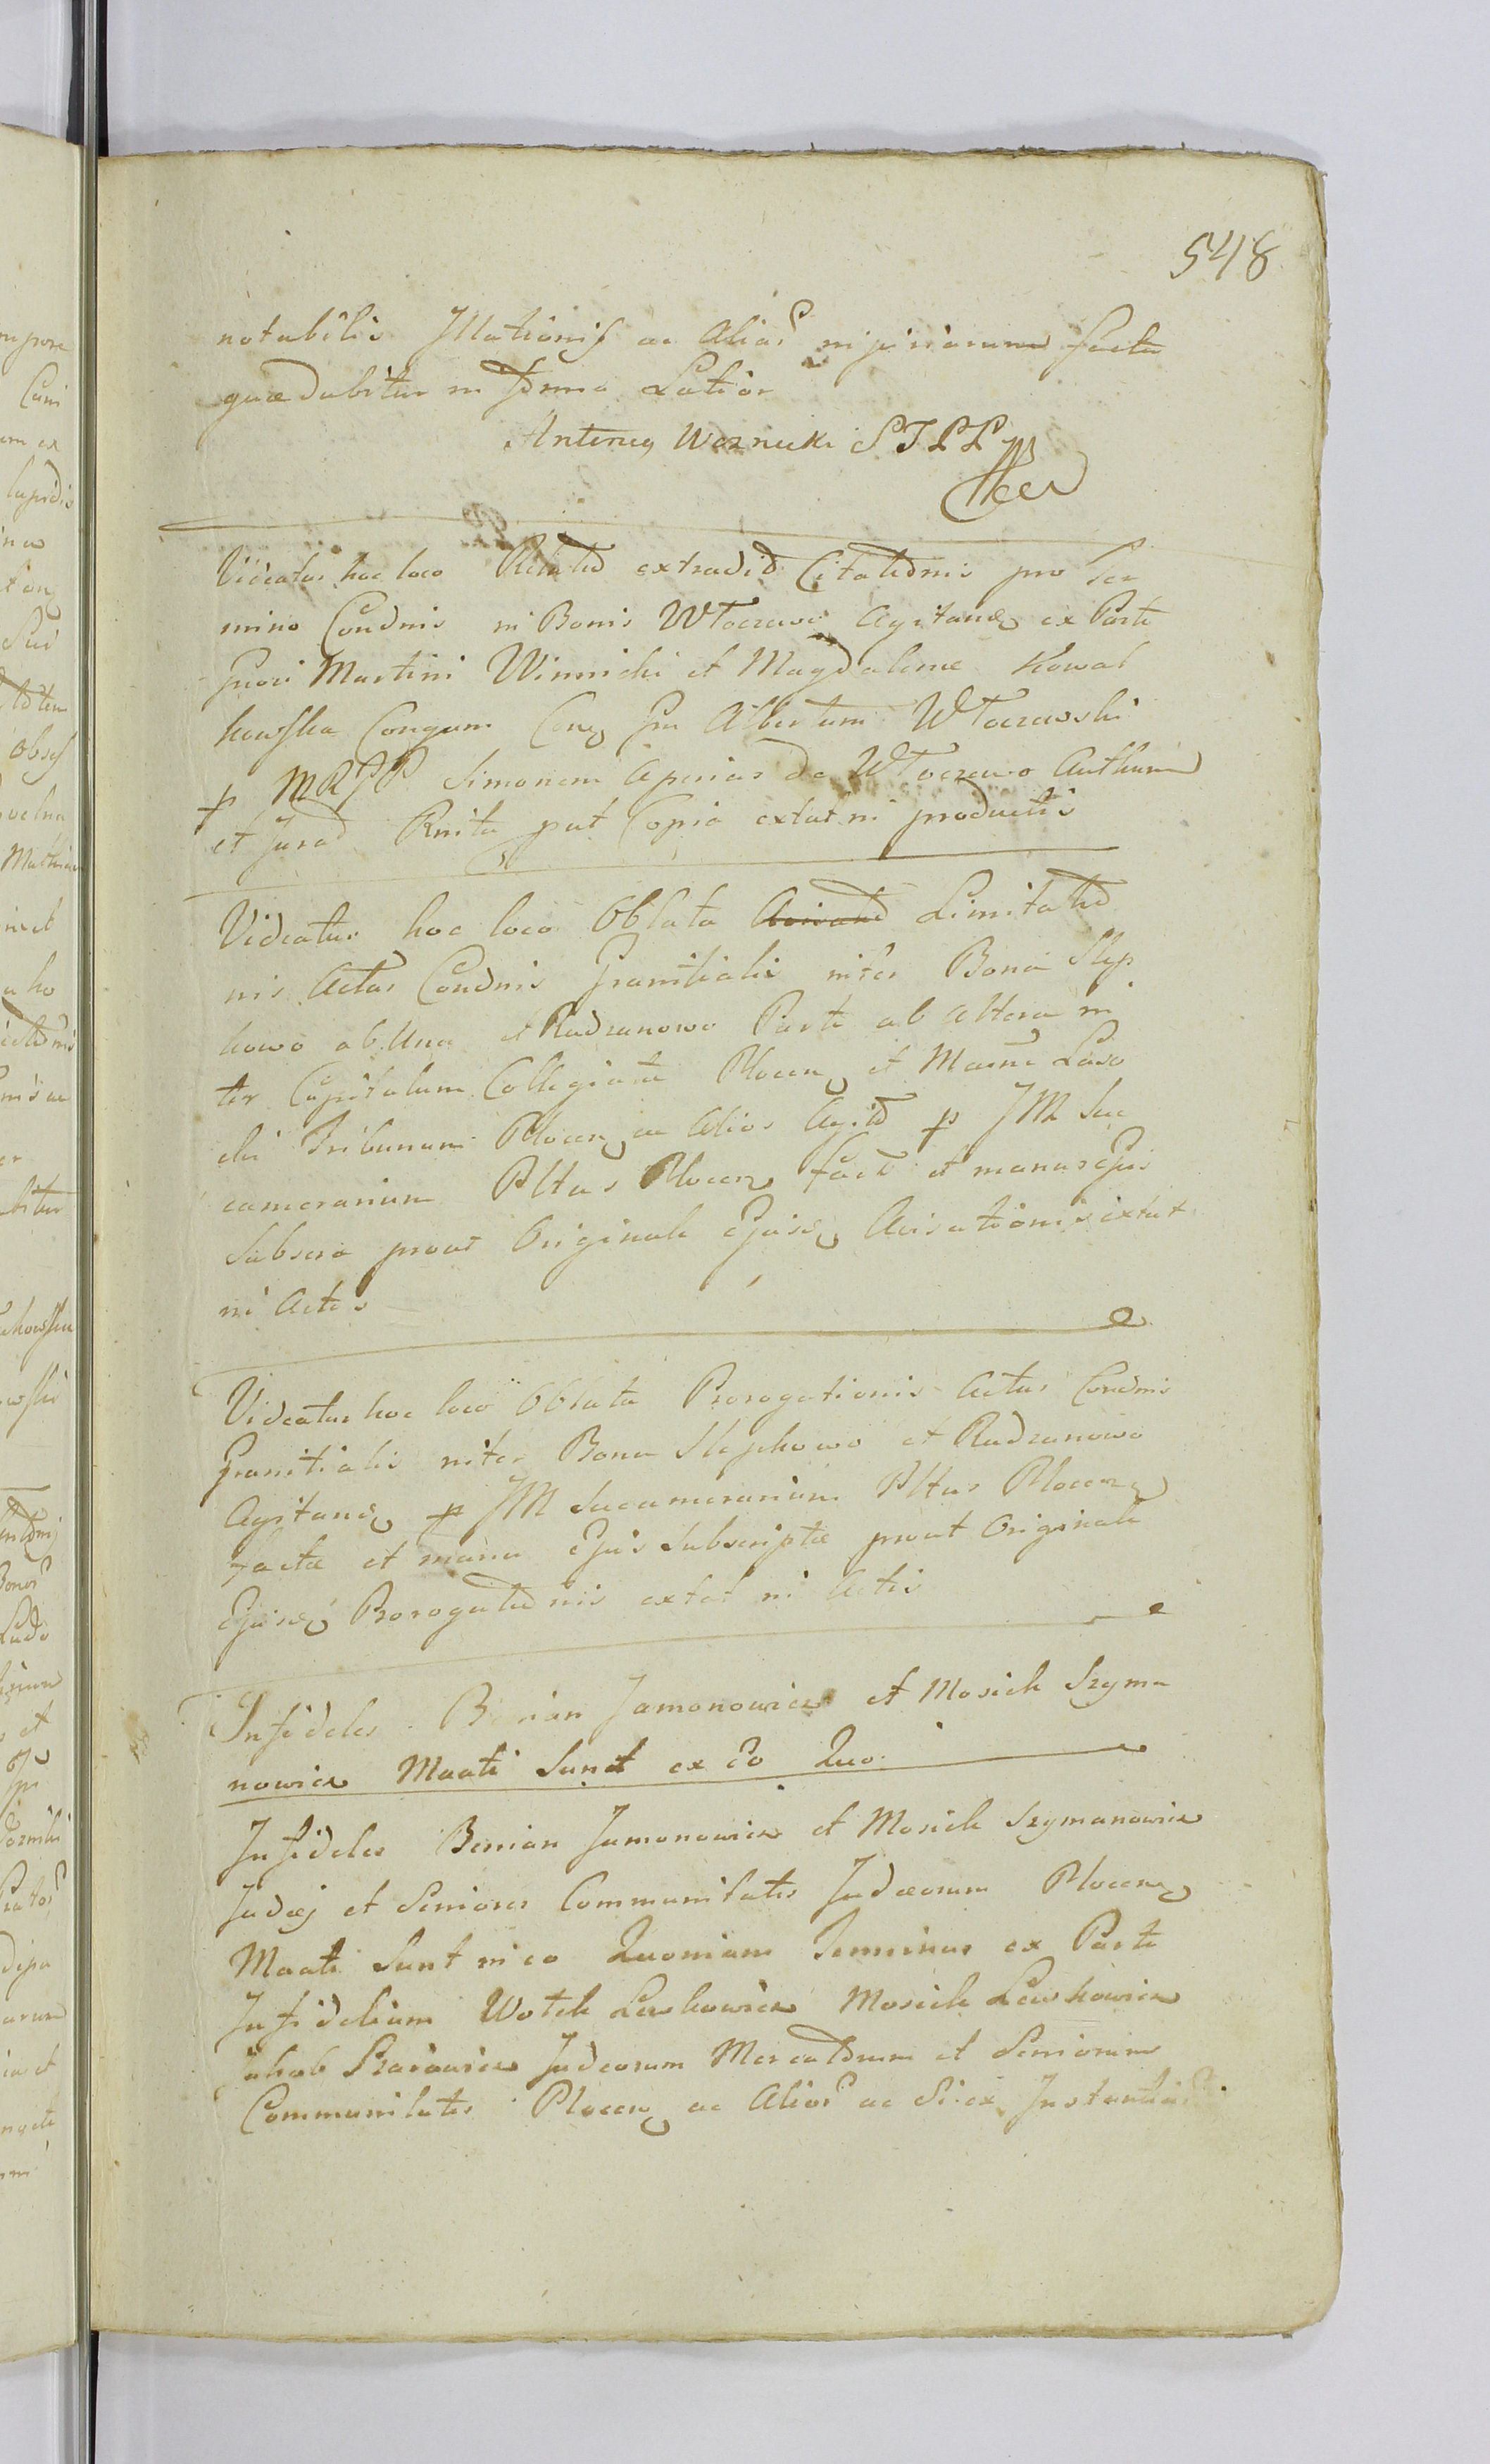 548
notabilis Illationis ac Alias injuriarum facta
quae dabitur in forma Latior
Antonius Woznicki STPP
Videatur hoc loco Relatio extradit Citationis pro Ter
mino Condnis in Bonis Wtoczewo Agitand ex Parte
Gnori Martini Winnicki et Magdalene Kowal
kowska Conjugum Gm Albertum Wtoczewski
p MRPP Simonem de Wtoczewo
et Jurad put Copia extat in productis
Videatur hoc loco Oblata Limitatio
nis Actus Condnis Granitialis inter Bona Slep
kowo ab Una et Radzanowo Parte ab altera in
ter Capitulum Collegiatæ Plocen et Laso
cki Tribunum Plocen ac Alios Agit p JM Suc
camerarium Pltus Plocen fact et manu Ejus
Subscra prout Originale Ejusd Avisationis extat
in Actis
Videatur hoc loco Oblata Prorogationis Actus Condnis
Granitialis inter Bona Slepkowo et Radzanowo
Agitand p JM Succamerarium Pltus Plocen
factæ et manu Ejus Subscriptæ prout Originale
Ejusd Prorogationis extat in Actis
Infideles Benian Jamonowicz et Mosiek Szyma
nowicz Maati Sunt ex Eo Quo
Infideles Benian Jamonowicz et Mosiek Szymanowicz
Judæj et Seniores Communitatis Judæorum Plocen
Maati Sunt in eo Quoniam Terminus ex Parte
Infidelium Wotek Lewkowicz Mosiek Lewkowicz
Jakob Judeorum Mercatorum et Seniorum
Communitatis Plocen ac Alior ac Si ex Instantia